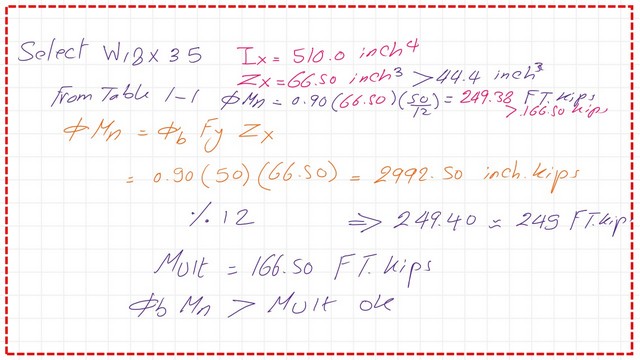 Select W18x35 Ix = 510.0 inch⁴
Zx = 66.50 inch³ > 44.4 inch³
From Table 1-1 ΦMn = 0.90 (66.50) (50/12) = 249.38 FT.kips
> 166.50 kips
ΦMn = Φb Fy Zx
= 0.90 (50) (66.50) = 2992.50 inch.kips
% 12 => 249.40 ≈ 249 FT.kip
Mult = 166.50 FT.kips
Φb Mn > Mult ok